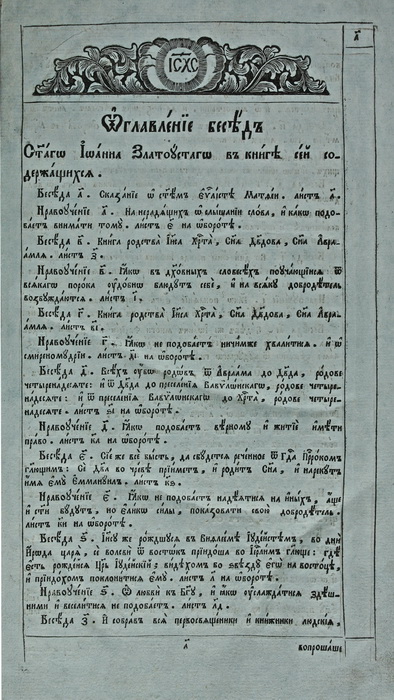 а҃
ІС ХС
Ѡглавле́нїе бесѣ́дъ
Ст҃а́гѡ Іѡа́нна Златоꙋ́стагѡ въ кни́гѣ се́й со-
держа́щихсѧ .
Бесѣ́да а҃ . Сказа́нїе ѡ ст҃ѣ́мъ є҆ѵⷢ҇лі́стѣ Матѳе́и . ли́стъ
Нравоꙋче́нїе а҃ . На нерадѧ́щихъ ѡ слы́шанїи сло́ва , и ка́кѡ подо-
ба́етъ внима́ти томꙋ . ли́стъ є҃ на ѡборо́тѣ .
Бесѣ́да в҃ . Кни́га родства̀ Іи҃са Хрⷭ҇та̀ , Сн҃а Дв҃дова , Сн҃а Авра-
а́млѧ . ли́стъ з҃ .
Нравоꙋче́нїе в҃ . Ꙗ҆́кѡ въ дꙋхо́вныхъ словесѣ́хъ поꙋча́ющїисѧ ѿ
всѧ́кагѡ поро́ка ᲂу҆до́бнѡ блюдꙋ́тъ себѐ , и на всѧ́кꙋ добродѣ́тель
возбꙋжда́ютсѧ . ли́стъ і҃ .
Бесѣ́да г҃ . Кни́га родства̀ Іи҃са Хрⷭ҇та̀ , Сн҃а Дв҃дова , Сн҃а Авра-
а́млѧ . ли́стъ в҃і .
Нравоꙋче́нїе г҃ . Ꙗ҆́кѡ не подоба́етъ ничи́мже хвали́тисѧ . и ѡ
смиренномꙋ́дрїи . ли́стъ д҃і на ѡборо́тѣ .
Бесѣ́да д҃ . Всѣ́хъ ᲂу҆́бѡ родѡ́въ ѿ Авраа́ма до Дв҃да , ро́дове
четырена́десѧте : и ѿ Дв҃да до преселе́нїѧ Вавѷлѡ́нскагѡ , ро́дове четыре-
на́десѧте : и ѿ преселе́нїѧ Вавѷлѡ́нскагѡ до Хрⷭ҇та̀ , ро́дове четыре-
на́десѧте . ли́стъ ѕ҃і на ѡборо́тѣ .
Нравоꙋче́нїе д҃ . Ꙗ҆́кѡ подоба́етъ вѣ́рномꙋ и житїѐ и҆мѣ́ти
пра́во . ли́стъ к҃а на ѡборо́тѣ .
Бесѣ́да є҃ . Сїе́ же всѐ бы́сть , да сбꙋ́детсѧ рече́нное ѿ Гдⷭ҇а Прⷪ҇ро́комъ
гл҃ющимъ : Сѐ дв҃а во чре́вѣ прїи́метъ , и роди́тъ Сн҃а , и нарекꙋ́тъ
и҆́мѧ є҆мꙋ̀ Є҆мманꙋ́илъ . ли́стъ
Нравоꙋче́нїе є҃ . Ꙗ҆́кѡ не подоба́етъ надѣ́ѧтисѧ на и҆ны́хъ , а҆́ще
и ст҃и бꙋ́дꙋтъ , но є҆ли́кѡ си́лы , показова́ти свою̀ добродѣ́тель .
ли́стъ к҃и на ѡборо́тѣ .
Бесѣ́да ѕ҃ . Іи҃сꙋ же ро́ждшꙋсѧ въ Виѳлее́мѣ Іꙋде́йстѣмъ , во дни̑
И҆́рѡда царѧ̀ , сѐ волсвѝ ѿ восто́къ прїидо́ша во Іерⷭ҇ли́мъ гл҃юще : гдѣ̀
є҆́сть рожде́йсѧ Цр҃ь Іꙋде́йскїй ; ви́дѣхомъ бо ѕвѣздꙋ̀ є҆гѡ̀ на восто́цѣ ,
и прїидо́хомъ поклони́тисѧ є҆мꙋ̀ . ли́стъ л҃ на ѡборо́тѣ .
Нравоꙋче́нїе ѕ҃ . Ѡ любвѝ къ Бг҃ꙋ , и ꙗ҆́кѡ ᲂу҆слажда́тисѧ здѣ́ш-
ними и весели́тисѧ не подоба́етъ . ли́стъ л҃д .
Бесѣ́да з҃ . И собра́въ всѧ̑ первосвѧще́нники и кни́жники людскі́ѧ ,
а҃
вопроша́ше